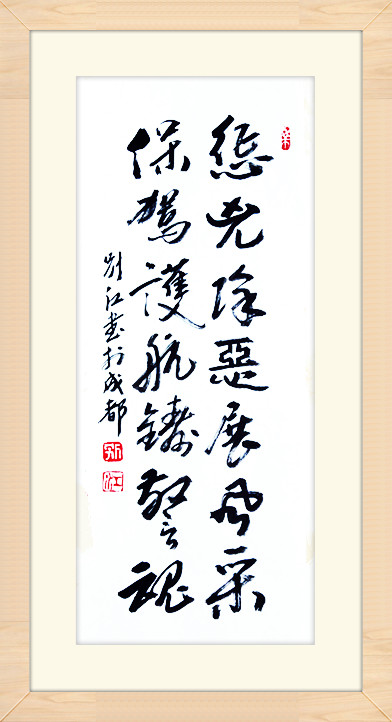 惩兇除惡展风采
保驾護航鑄警魂
江書於成都